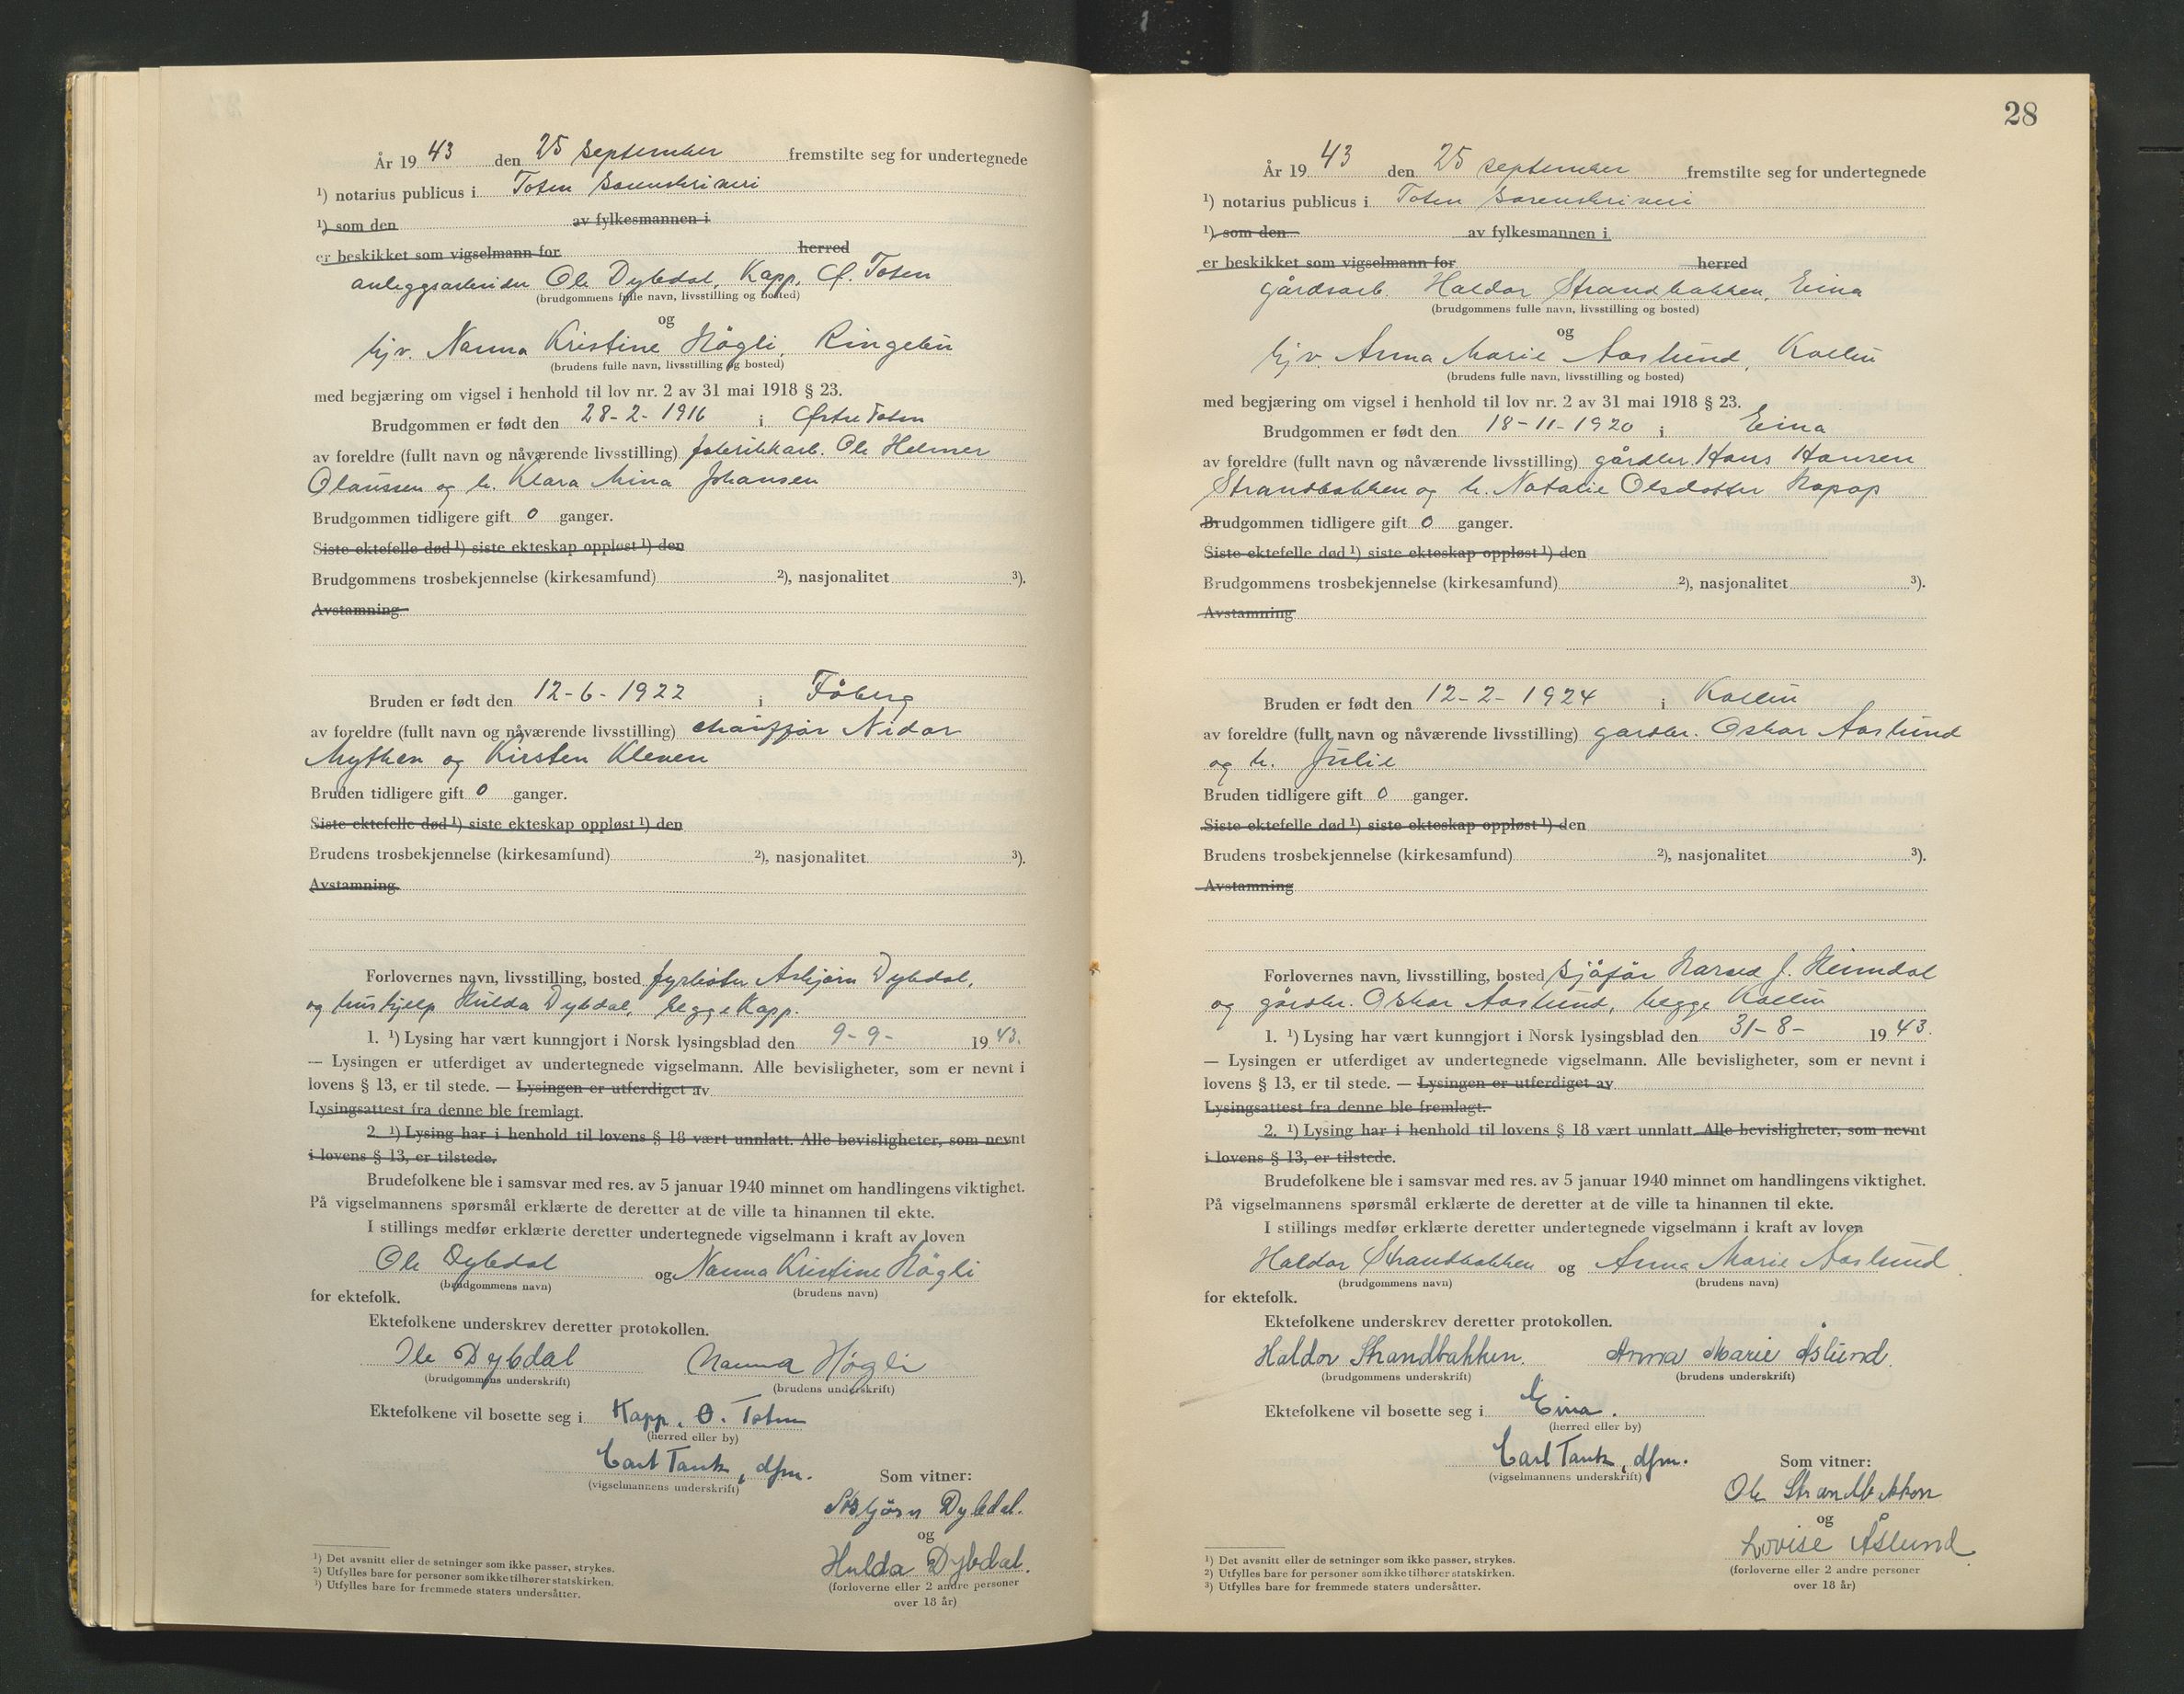 År 19 43 den 25 september fremstilte seg for undertegnede
¹) notarius publicus i Toten sorenskriveri
¹) som den av fylkesmannen i
er beskikket som vigselmann for herred
anleggsarbeider Ole Dybdal, Kapp, Ø. Toten
(brudgommens fulle navn, livsstilling og bosted)
og
hjv. Nanna Kristine Högli, Ringebu
(brudens fulle navn, livsstilling og bosted)
med begjæring om vigsel i henhold til lov nr. 2 av 31 mai 1918 § 23.
Brudgommen er født den 28-2-1916 i Østre Toten
av foreldre (fullt navn og nåværende livsstilling) fabrikkarb. Ole Helmer
Olaussen og h. Klara Mina Johansen
Brudgommen tidligere gift 0 ganger.
Siste ektefelle død ¹) siste ekteskap oppløst ¹) den
Brudgommens trosbekjennelse (kirkesamfund) ²), nasjonalitet ³).
Avstamning
Bruden er født den 12-6-1922 i Fåberg
av foreldre (fullt navn og nåværende livsstilling) chauffør Nidar
Mythen og Kirsten Kleven
Bruden tidligere gift 0 ganger.
Siste ektefelle død ¹) siste ekteskap oppløst ¹) den
Brudens trosbekjennelse (kirkesamfund) ²), nasjonalitet ³).
Avstamning
Forlovernes navn, livsstilling, bosted fyrbøter Asbjørn Dybdal,
og hushjelp Hulda Dybdal, begge Kapp.
1. ¹) Lysing har vært kunngjort i Norsk lysingsblad den 9-9- 19 43.
— Lysingen er utferdiget av undertegnede vigselmann. Alle bevisligheter, som er nevnt i
lovens § 13, er til stede. — Lysingen er utferdiget av
Lysingsattest fra denne ble fremlagt.
2. ¹) Lysing har i henhold til lovens § 18 vært unnlatt. Alle bevisligheter, som nevnt
i lovens § 13, er tilstede.
Brudefolkene ble i samsvar med res. av 5 januar 1940 minnet om handlingens viktighet.
På vigselmannens spørsmål erklærte de deretter at de ville ta hinannen til ekte.
I stillings medfør erklærte deretter undertegnede vigselmann i kraft av loven
Ole Dybdal og Nanna Kristine Högli
(brudgommens navn) (brudens navn)
for ektefolk.
Ektefolkene underskrev deretter protokollen.
Ole Dybdal Nanna Högli
(brudgommens underskrift) (brudens underskrift)
Ektefolkene vil bosette seg i Kapp, Ø. Toten
(herred eller by)
Carl Tank, dfm.
(vigselmannens underskrift)
Som vitner:
Asbjørn Dybdal.
og
Hulda Dybdal.
(forloverne eller 2 andre personer
over 18 år)
¹) Det avsnitt eller de setninger som ikke passer, strykes.
²) Utfylles bare for personer som ikke tilhører statskirken.
³) Utfylles bare for fremmede staters undersåtter.
28
År 19 43 den 25 september fremstilte seg for undertegnede
¹) notarius publicus i Toten sorenskriveri
¹) som den av fylkesmannen i
er beskikket som vigselmann for herred
gårdsarb. Haldor Strandbakken, Eina
(brudgommens fulle navn, livsstilling og bosted)
og
hjv. Anna Marie Aaslund, Kolbu
(brudens fulle navn, livsstilling og bosted)
med begjæring om vigsel i henhold til lov nr. 2 av 31 mai 1918 § 23.
Brudgommen er født den 18-11-1920 i Eina
av foreldre (fullt navn og nåværende livsstilling) gårdbr. Hans Hansen
Strandbakken og h. Natalie Olsdatter
Brudgommen tidligere gift 0 ganger.
Siste ektefelle død ¹) siste ekteskap oppløst ¹) den
Brudgommens trosbekjennelse (kirkesamfund) ²), nasjonalitet ³).
Avstamning
Bruden er født den 12-2-1924 i Kolbu
av foreldre (fullt navn og nåværende livsstilling) gårdbr. Oskar Aaslund
og h. Julie
Bruden tidligere gift 0 ganger.
Siste ektefelle død ¹) siste ekteskap oppløst ¹) den
Brudens trosbekjennelse (kirkesamfund) ²), nasjonalitet ³).
Avstamning
Forlovernes navn, livsstilling, bosted sjåfør J. Heimdal
og gårdbr. Oskar Aaslund, begge Kolbu
1. ¹) Lysing har vært kunngjort i Norsk lysingsblad den 31-8- 19 43.
— Lysingen er utferdiget av undertegnede vigselmann. Alle bevisligheter, som er nevnt i
lovens § 13, er til stede. — Lysingen er utferdiget av
Lysingsattest fra denne ble fremlagt.
2. ¹) Lysing har i henhold til lovens § 18 vært unnlatt. Alle bevisligheter, som nevnt
i lovens § 13, er tilstede.
Brudefolkene ble i samsvar med res. av 5 januar 1940 minnet om handlingens viktighet.
På vigselmannens spørsmål erklærte de deretter at de ville ta hinannen til ekte.
I stillings medfør erklærte deretter undertegnede vigselmann i kraft av loven
Haldor Strandbakken og Anna Marie Aaslund
(brudgommens navn) (brudens navn)
for ektefolk.
Ektefolkene underskrev deretter protokollen.
Haldor Strandbakken. Anna Marie Åslund.
(brudgommens underskrift) (brudens underskrift)
Ektefolkene vil bosette seg i Eina.
(herred eller by)
Carl Tank, dfm.
(vigselmannens underskrift)
Som vitner:
Ole Strandbakken
og
Lovise Åslund
(forloverne eller 2 andre personer
over 18 år)
¹) Det avsnitt eller de setninger som ikke passer, strykes.
²) Utfylles bare for personer som ikke tilhører statskirken.
³) Utfylles bare for fremmede staters undersåtter.